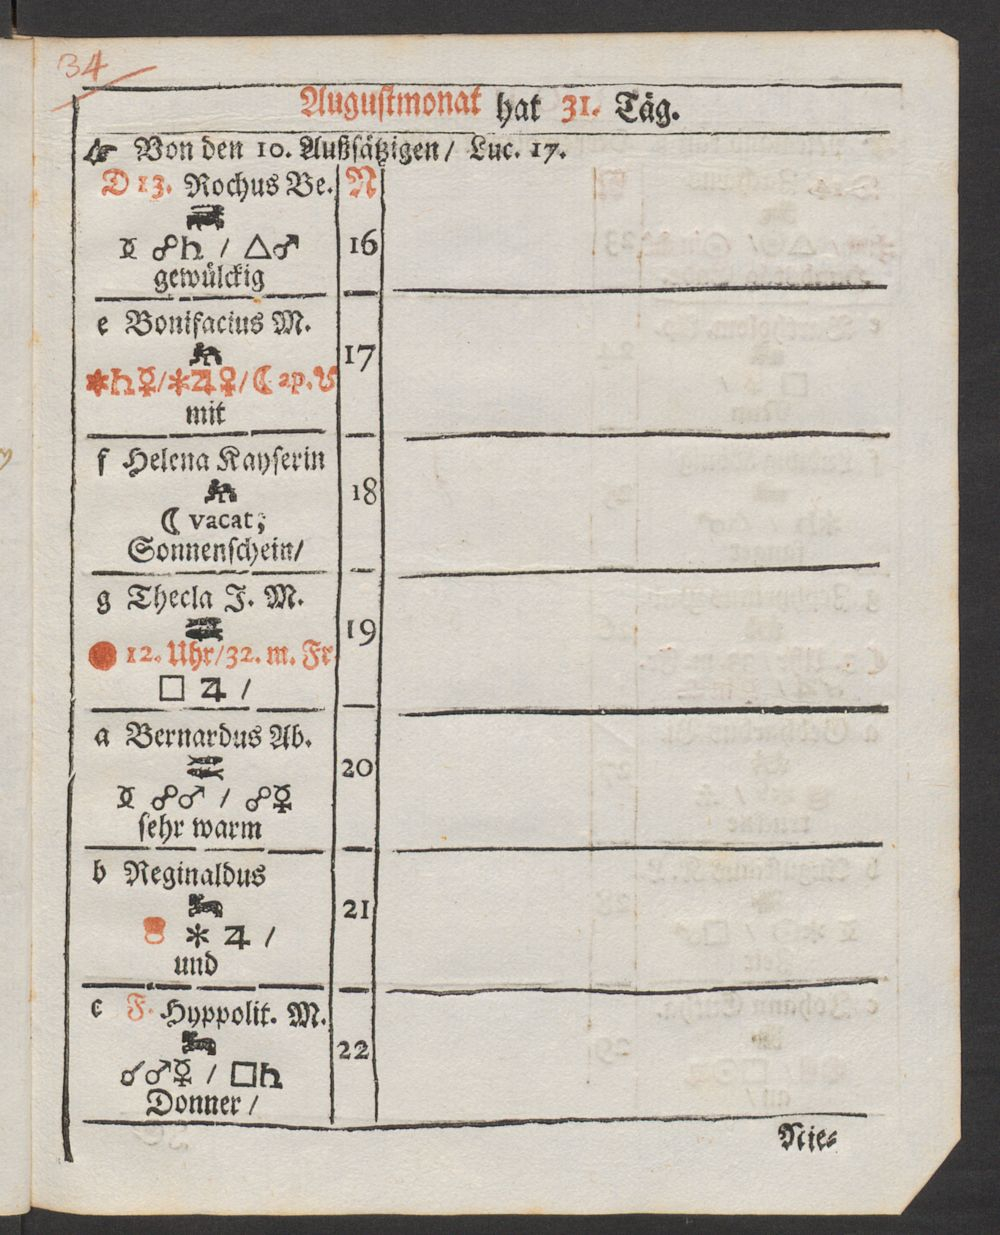 34
Augustmonat hat 31. Täg.
☞ Von den 10. Außsätzigen / Luc. 17.
D 13. Rochus Ve. N
☍♄ / △♂ 16
gewülckig
e Bonifacius M.
17
✱♄☿/✱♃♀/☾ ap.
mit
f Helena Kayserin
18
☾ vacat;
Sonnenschein/
g Thecla J. M.
19
● 12. Uhr/32. m. Fr.
□ ♃ /
a Bernardus Ab.
20
☍♂ / ☍☿
sehr warm
b Reginaldus
21
✱ ♃ /
und
c F. Hyppolit. M.
22
☌♂☿ / □♄
Donner /
Nie⸗